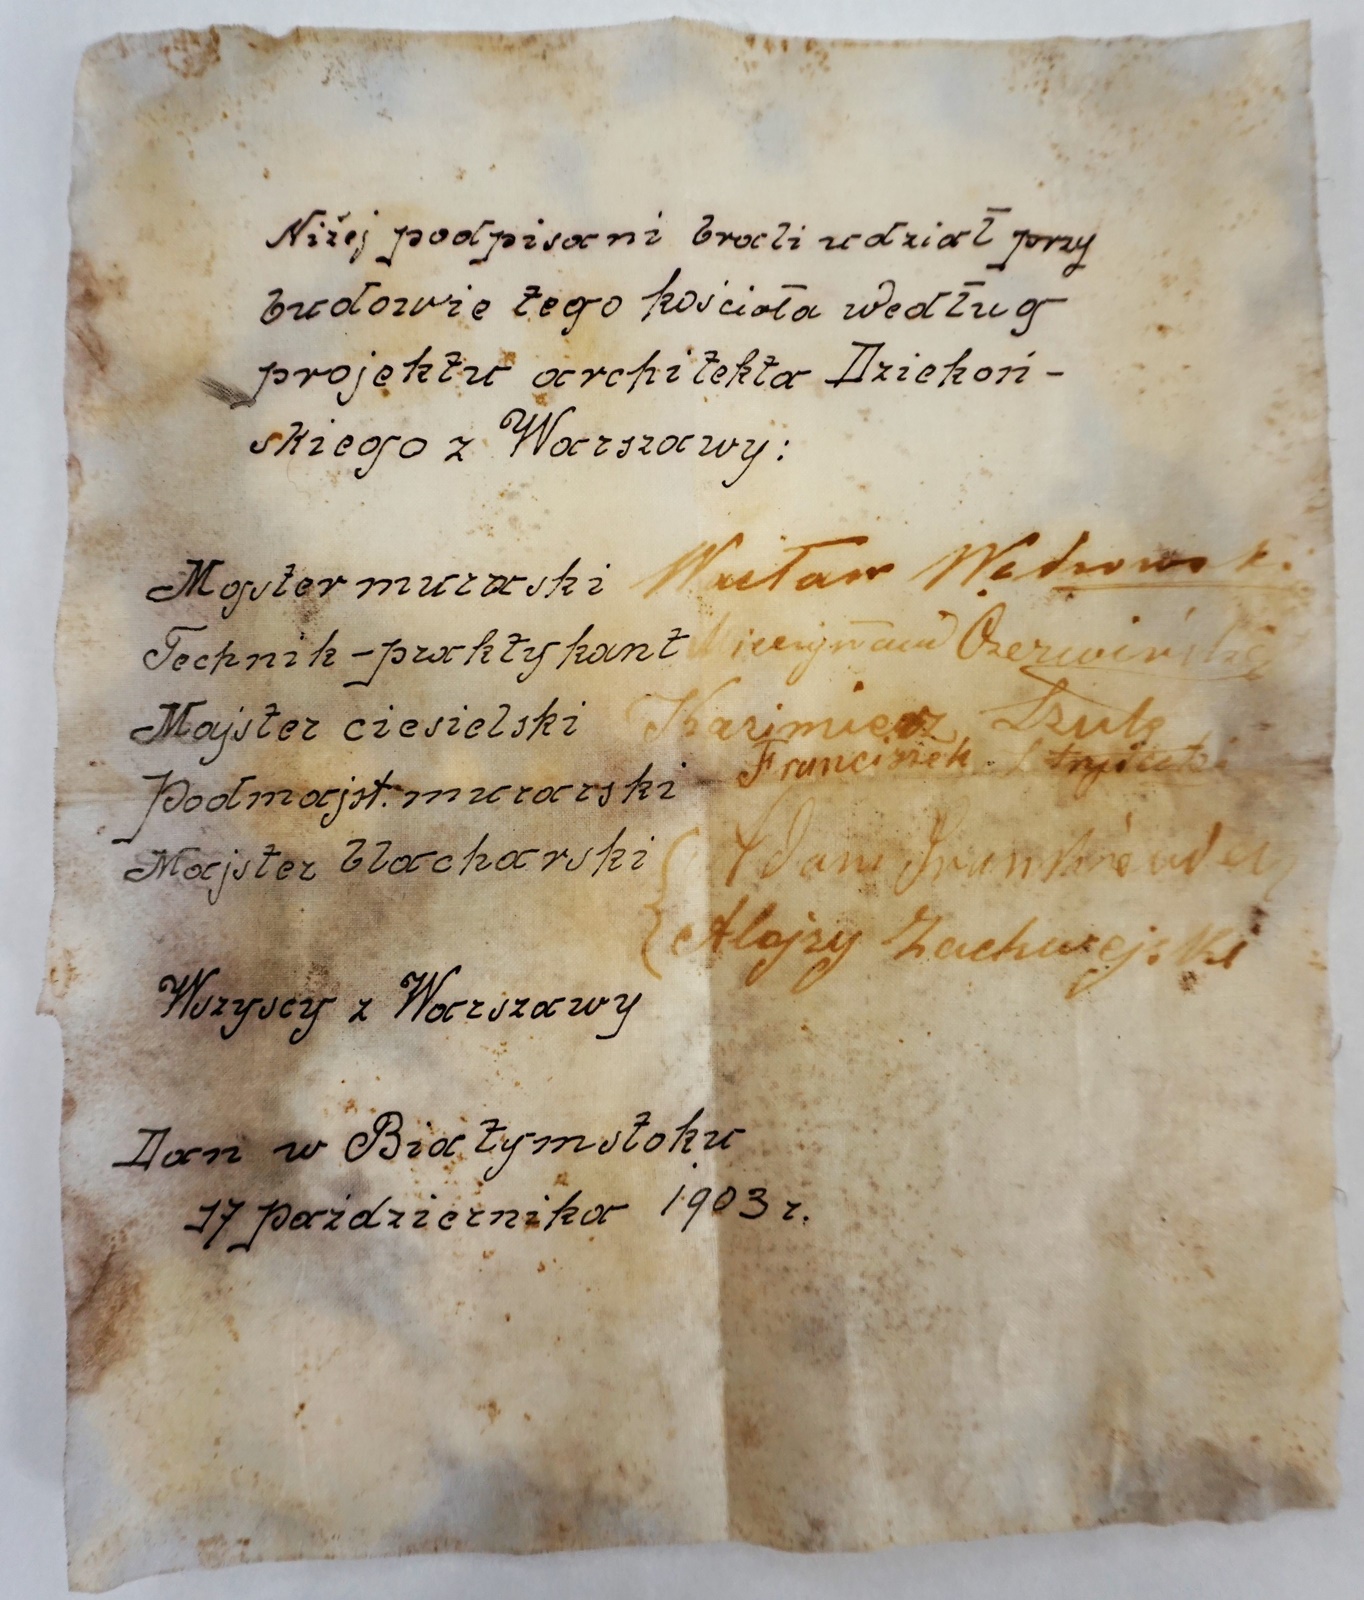 Niżej podpisani brali udział przy
budowie tego kościoła według
projektu architekta Dziekoń-
skiego z Warszawy:
Majster murarski Wacław
Technik-praktykant Czerwiński
Majster ciesielski Kazimierz Szulc
Podmajst. murarski Franciszek
Majster blacharski { Adam
Alojzy
Wszyscy z Warszawy
Dan w Białymstoku
17 października 1903 r.